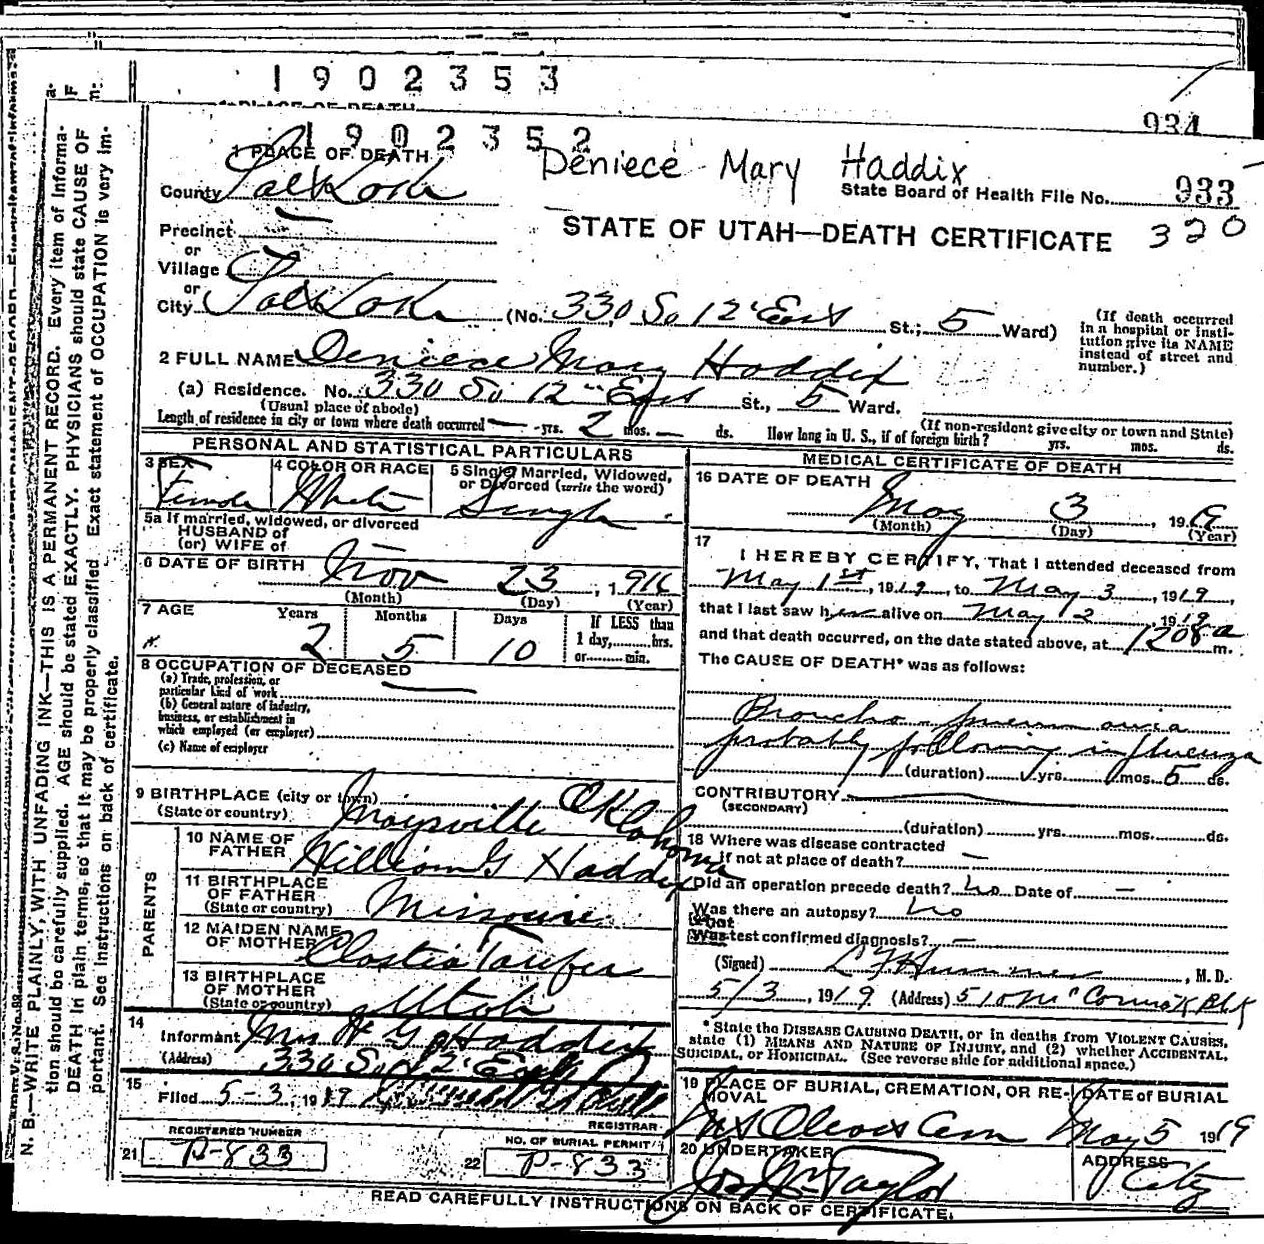 1902353
1 PLACE OF DEATH
934
1902352
1 PLACE OF DEATH
Deniece Mary Haddix
County Salt Lake
State Board of Health File No. 933
STATE OF UTAH—DEATH CERTIFICATE 320
Precinct
or
Village
or
City Salt Lake (No. 330 So 12" East St.; 5 Ward)
(If death occurred in a hospital or insti-
tution give its NAME
instead of street and
number.)
2 FULL NAME Deniece Mary Haddix
(a) Residence. No. 330 So 12" East St., 5 Ward.
(Usual place of abode)
(If non-resident give city or town and State)
Length of residence in city or town where death occurred — yrs. 2 mos. — ds. How long in U. S., if of foreign birth? yrs. mos. ds.
PERSONAL AND STATISTICAL PARTICULARS
3 SEX Female
4 COLOR OR RACE White
5 Single, Married, Widowed,
or Divorced (write the word)
Single
5a If married, widowed, or divorced
HUSBAND of
(or) WIFE of —
6 DATE OF BIRTH Nov 23, 1916
(Month) (Day) (Year)
7 AGE Years Months Days If LESS than
1 day,......hrs.
or......min.
2 5 10
8 OCCUPATION OF DECEASED —
(a) Trade, profession, or
particular kind of work
(b) General nature of industry,
business, or establishment in
which employed (or employer)
(c) Name of employer
9 BIRTHPLACE (city or town)
(State or country) Maysville Oklahoma
PARENTS
10 NAME OF
FATHER William G Haddix
11 BIRTHPLACE
OF FATHER
(State or country) Missouri
12 MAIDEN NAME
OF MOTHER Taufer
13 BIRTHPLACE
OF MOTHER
(State or country) Utah
14
Informant Mrs W G Haddix
(Address) 330 So 12" East
15
Filed 5-3, 1919
REGISTRAR
REGISTERED NUMBER
21 P-833
NO. OF BURIAL PERMIT
22 P-833
MEDICAL CERTIFICATE OF DEATH
16 DATE OF DEATH
May 3, 1919
(Month) (Day) (Year)
17
I HEREBY CERTIFY, That I attended deceased from
May 1st, 1919, to May 3, 1919,
that I last saw her alive on May 2 1919
and that death occurred, on the date stated above, at 1208 a m.
The CAUSE OF DEATH* was as follows:
Broncho-pneumonia
probably following influenza
(duration) yrs. mos. 5 ds.
CONTRIBUTORY
(SECONDARY)
(duration) yrs. mos. ds.
18 Where was disease contracted
if not at place of death? —
Did an operation precede death? no Date of —
Was there an autopsy? no
What
test confirmed diagnosis? —
(Signed) , M. D.
5/3, 1919 (Address) 510 McCornick Blk
* State the DISEASE CAUSING DEATH, or in deaths from VIOLENT CAUSES,
state (1) MEANS AND NATURE OF INJURY, and (2) whether ACCIDENTAL,
SUICIDAL, or HOMICIDAL. (See reverse side for additional space.)
19 PLACE OF BURIAL, CREMATION, OR RE-
MOVAL
Mt Olivet Cem
DATE of BURIAL
May 5 1919
20 UNDERTAKER
Jos Wm Taylor
ADDRESS
City
READ CAREFULLY INSTRUCTIONS ON BACK OF CERTIFICATE.
N. B.—WRITE PLAINLY, WITH UNFADING INK—THIS IS A PERMANENT RECORD. Every item of informa-
tion should be carefully supplied. AGE should be stated EXACTLY. PHYSICIANS should state CAUSE OF
DEATH in plain terms, so that it may be properly classified. Exact statement of OCCUPATION is very im-
portant. See instructions on back of certificate.